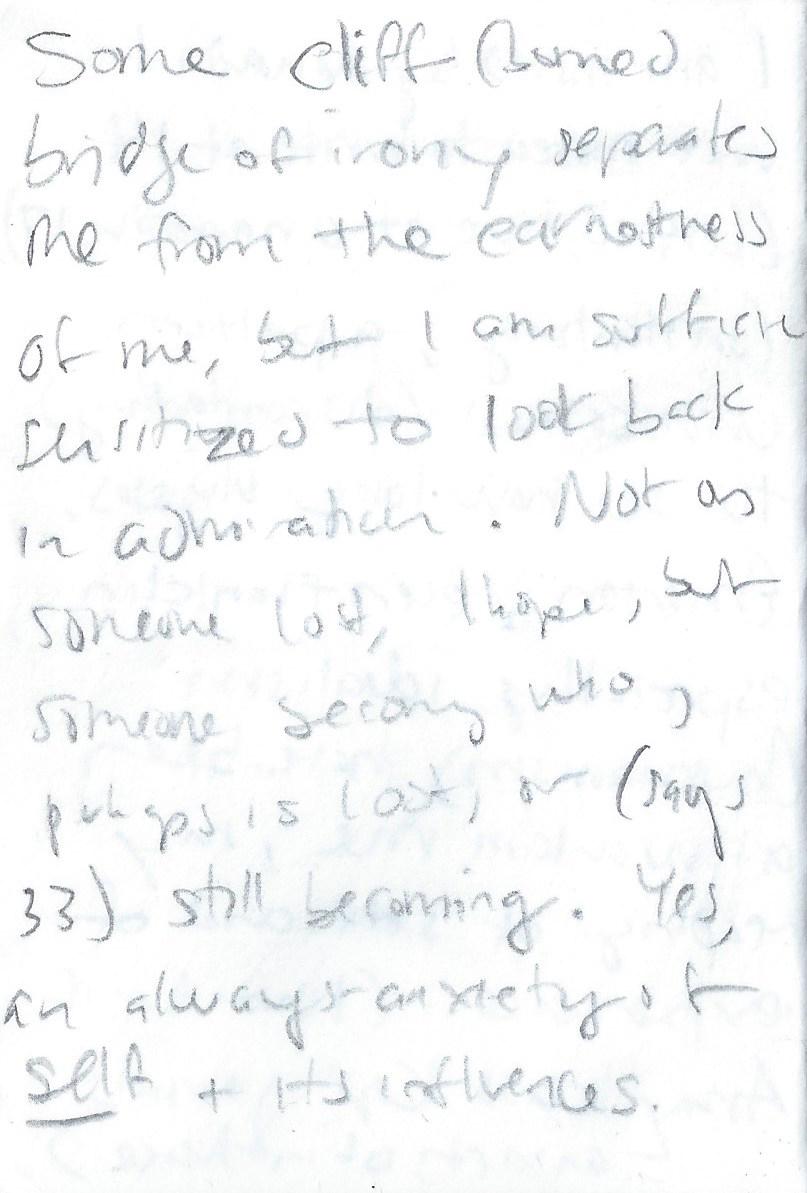 Some cliff (burned
bridge of irony separates
me from the earnestness
of me, but I am sufficie
sensitized to look back
in admiration. Not as
someone lost, I hope, but
someone seeing who,
perhaps is lost, or (says
33) still becoming. Yes,
an always anxiety of
self + its influences.